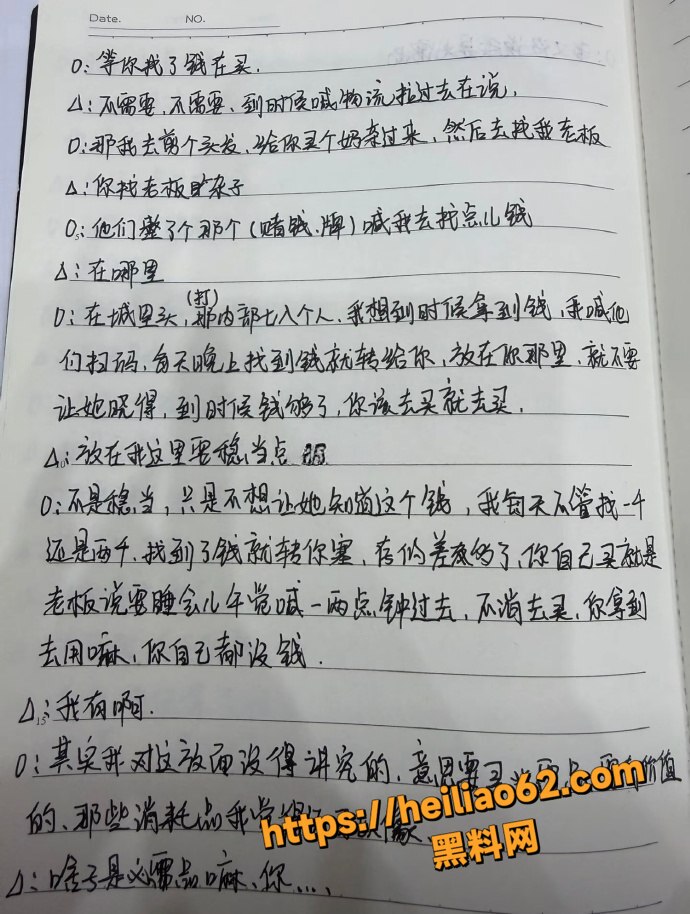 Date. NO.
O: 等你找了钱在买.
△: 不需要、不需要、到时候喊物流拉过去在说,
O: 那我去剪个头发, 给你买个奶茶过来, 然后去找我老板
△: 你找老板杂子
O: 他们整了个那个(赌钱.牌)喊我去找点儿钱
△: 在哪里
(打)
O: 在城里头, 那内部七八个人、我想到时候拿到钱, 我喊他
们扫码, 每天晚上找到钱就转给你, 放在你那里、就不要
让她晓得, 到时候钱够了, 你该去买就去买.
△: 放在我这里要稳当点
O: 不是稳当, 只是不想让她知道这个钱, 我每天不管找一千
还是两千, 找到了钱就转你塞, 存的差不多够了, 你自己买就是
老板说要睡会儿午觉喊一两点钟过去, 不消去买, 你拿到
去用嘛, 你自己都没钱.
15
△: 我有啊.
O: 其实我对这方面没得讲究的, 意思要买 要 价值
的、那些消耗品我觉得
https://heiliao62.com
黑料网
△: 啥子是必需品嘛、你....